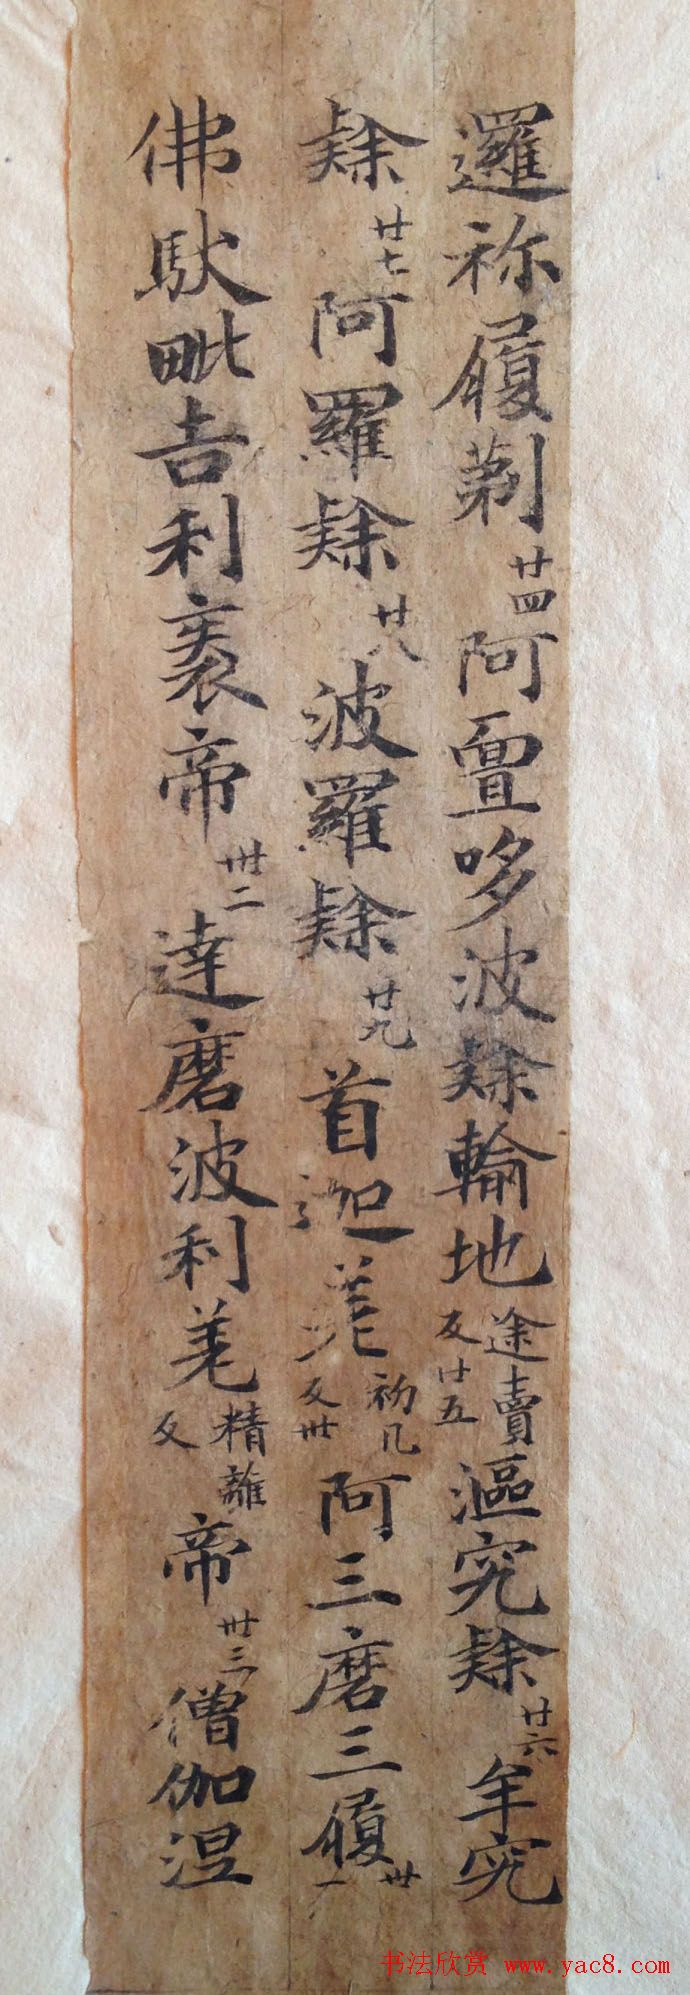 邏祢履剃廿四阿亶哆波隷輸地途賣反廿五漚究隷廿六牟究
隷廿七阿羅隷廿八波羅隷廿九首迦差初几反卅阿三磨三履卅一
佛馱毗吉利袠帝卅二達磨波利差精離反帝卅三僧伽涅
书法欣赏 www.yac8.com